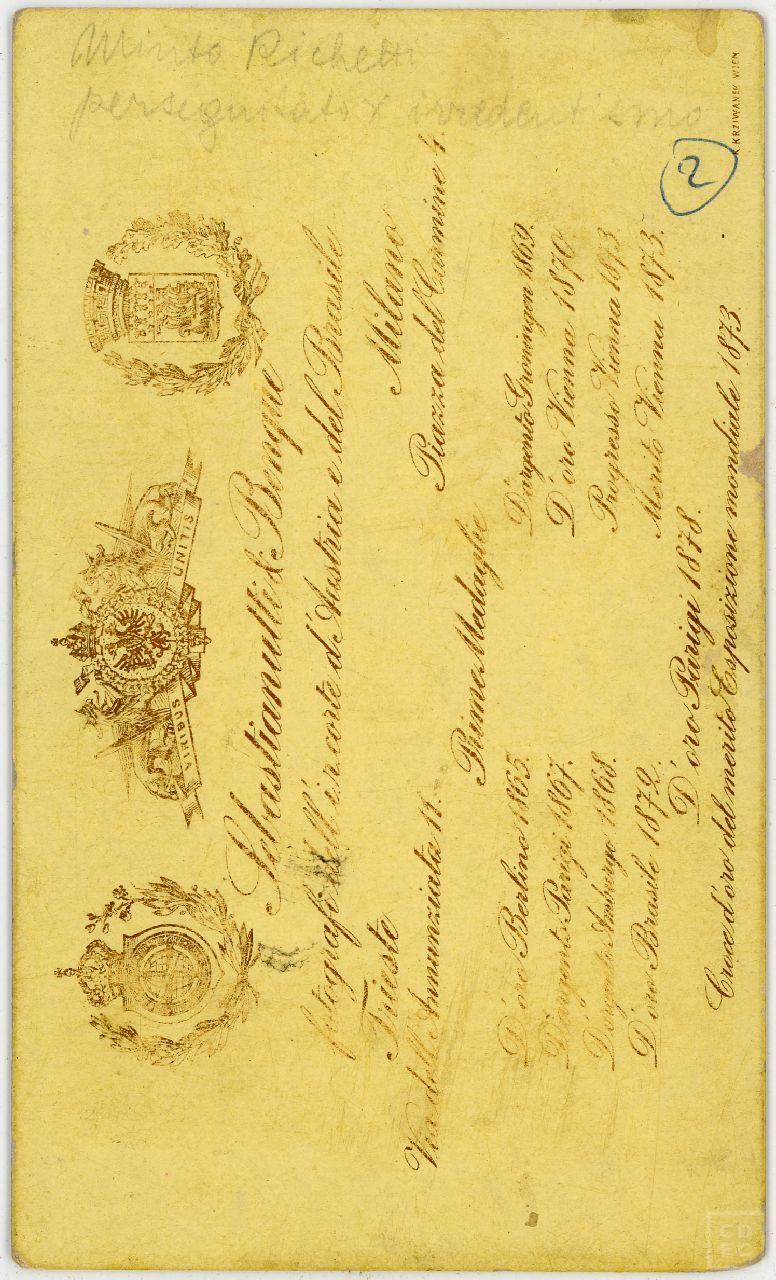 Minto Richetti
perseguitato x irredentismo
2
K. KRZIWANEK WIEN
VIRIBUS UNITIS
Sebastianutti & Benque
fotografi dell'i.r. corte d'Austria e del Brasile
Trieste
Via dell'Annunziata 11.
Milano
Piazza del Carmine 4.
Prime Medaglie
D'oro Berlino 1865.
D'argento Parigi 1867.
D'argento Amburgo 1868.
D'oro Brasile 1872.
D'argento Groningen 1869.
D'oro Vienna 1870.
Progresso Vienna 1873
Merito Vienna 1873.
D'oro Parigi 1878.
Croce d'oro del merito Esposizione mondiale 1873.
CD
EC